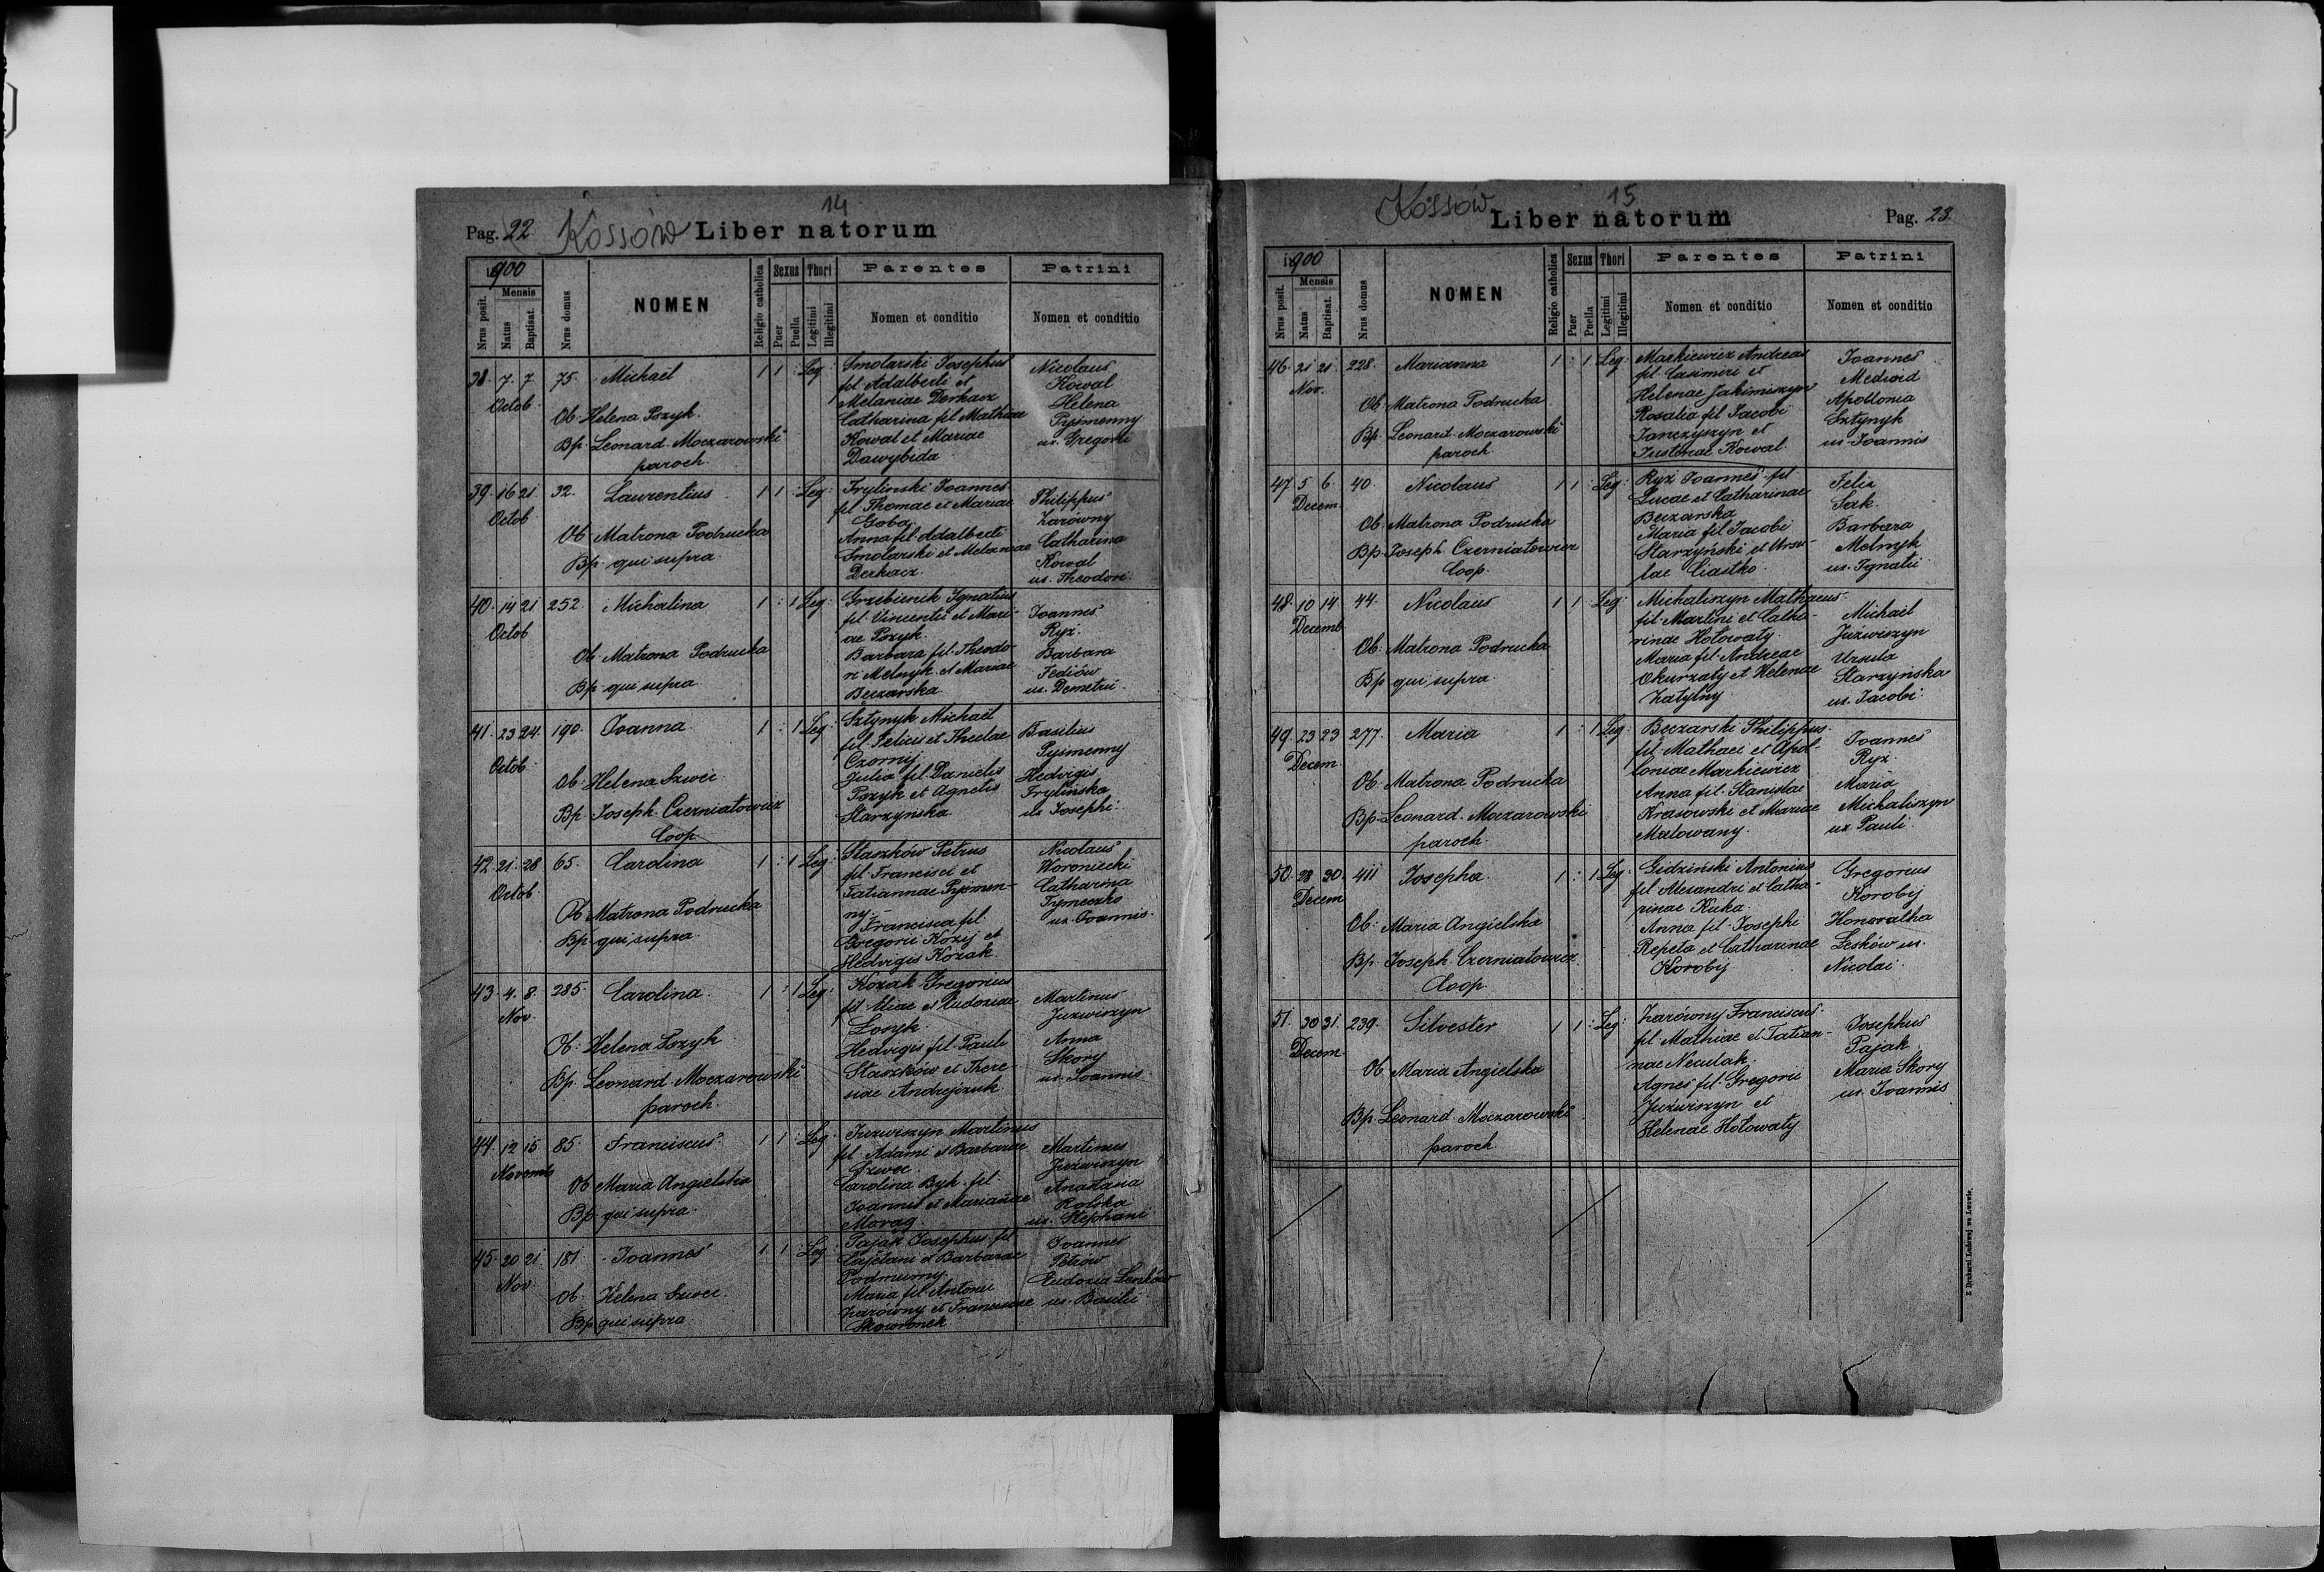 14
Pag. 22 Kossów Liber natorum
1900
Mensis
Nrus posit.
Natus
Baptisat.
Nrus domus
NOMEN
Religio catholica
Sexus
Puer
Puella
Thori
Legitimi
Illegitimi
Parentes
Nomen et conditio
Patrini
Nomen et conditio
38. 7. 7 75. Michaël 1 1 : Leg:
Octob.
Ob. Helena Pozyk.
Bp. Leonard Moczarowski
paroch.
Smolarski Josephus
fil. Adalberti et
Melaniae Derkacz
Catharina fil. Mathiae
Kowal et Mariae
Dawybida
Nicolaus
Kowal
Helena
Pyśmenny
ux. Gregorii
39. 16 21. 32. Laurentius 1 1 : Leg:
Octob.
Ob. Matrona Podrucka
Bp. qui supra.
Frylinski Joannes
fil. Thomae et Mariae
Goba
Anna fil. Adalberti
Smolarski et Melaniae
Derkacz.
Philippus
Zarówny
Catharina
Kowal
ux. Theodori
40. 14 21 252. Michalina 1 : 1 Leg:
Octob
Ob. Matrona Podrucka
Bp. qui supra
Grzebieniek Ignatius
fil. Vincentii et Mari-
ae Pozyk.
Barbara fil. Theodo-
ri Melnyk et Mariae
Beczarska
Joannes
Ryż.
Barbara
Fediów
ux. Demetrii.
41. 23 24. 190. Joanna 1 : 1 Leg:
Octob.
Ob: Helena Szwec.
Bp. Joseph Czerniatowicz
Coop.
Sztynyk Michaël
fil. Felicis et Theclae
Czornij
Julia fil. Danielis
Pozyk et Agnetis
Starzyńska.
Basilius
Pyśmenny
Hedvigis
Frylińska
ux Josephi.
42. 21. 28 65. Carolina 1 : 1 Leg:
Octob.
Ob. Matrona Podrucka
Bp. qui supra.
Staszków Petrus
fil. Francisci et
Tatiannae Pyśmen-
ny.
Francisca fil.
Gregorii Kozij et
Hedvigis Kozak
Nicolaus
Woroniecki
Catharina
Tymeczko
ux. Joannis.
43. 4. 8. 285. Carolina. 1 : 1 Leg:
Nov.
Ob: Helena Pozyk
Bp. Leonard Moczarowski
paroch.
Kozak Gregorius
fil. Eliae et Eudoxiae
Łosyk.
Hedvigis fil. Pauli
Staszków et There-
siae Andrejczuk
Martinus
Juzwiszyn
Anna
Skory
ux. Joannis.
44. 12 15 85. Franciscus. 1 1 : Leg:
Novemb
Ob Maria Angielska
Bp. qui supra.
Juzwiszyn Martinus
fil. Adami et Barbarae
Szwec.
Carolina Byk. fil.
Joannis et Mariannae
Morag.
Martinus
Juźwiszyn
Anastasia
Rolska
ux. Stephani
45. 20 21. 181. Joannes 1 1 : Leg:
Nov.
Ob: Helena Szwec.
Bp. qui supra.
Pająk Josephus fil.
Cajetani et Barbarae
Podmurny
Maria fil. Antonii
Zarówny et Franciscae
Skowronek
Joannes
Petrów
Eudoxia Leńków
ux. Basilii
15
Kossów Liber natorum Pag. 23.
1900
Mensis
Nrus posit.
Natus
Baptisat.
Nrus domus
NOMEN
Religio catholica
Sexus
Puer
Puella
Thori
Legitimi
Illegitimi
Parentes
Nomen et conditio
Patrini
Nomen et conditio
46. 21 21. 228. Marianna 1 : 1 Leg:
Nov.
Ob. Matrona Podrucka
Bp. Leonard Moczarowski
paroch
Markiewicz Andreas
fil. Casimiri et
Helenae Jakimiszyn
Rosalia fil. Jacobi
Janczyszyn et
Justinae Kowal.
Joannes
Medwid
Apollonia
Sztynyk
ux. Joannis
47. 5 6. 40. Nicolaus 1 1 : Leg:
Decem.
Ob. Matrona Podrucka
Bp. Joseph Czerniatowicz
Coop.
Ryż Joannes fil.
Lucae et Catharinae
Beczarska
Maria fil. Jacobi
Starzyński et Ursu-
lae Ciastko.
Felix
Sak.
Barbara
Melnyk
ux. Ignatii
48. 10 14. 44. Nicolaus 1 1 : Leg:
Decemb.
Ob: Matrona Podrucka
Bp. qui supra
Michaliszyn Mathaeus
fil. Martini et Catha-
rinae Hołowaty.
Maria fil. Andreae
Okurzaty et Helenae
Zatylny
Michaël
Juźwiszyn
Ursula
Starzyńska
ux. Jacobi.
49. 23 23 277. Maria 1 : 1 Leg:
Decem.
Ob. Matrona Podrucka
Bp. Leonard Moczarowski
paroch.
Beczarski Philippus
fil. Mathaei et Apol-
loniae Markiewicz
Anna fil. Stanislai
Krasowski et Mariae
Malowany.
Joannes
Ryż.
Maria
Michaliszyn
ux Pauli.
50. 28 30. 411 Josepha. 1 : 1 Leg:
Decem
Ob: Maria Angielska
Bp. Joseph Czerniatowicz.
Coop.
Gidziński Antonius
fil. Alexandri et Catha-
rinae Kuka.
Anna fil. Josephi
Repeta et Catharinae
Korobij
Gregorius
Korobij
Honoratha
Leśków ux.
Nicolai.
51. 30 31. 239. Silvester 1 1 : Leg:
Decem.
Ob Maria Angielska
Bp. Leonard Moczarowski
paroch.
Zarówny Franciscus
fil. Mathiae et Tatian-
nae Neculak.
Agnes fil. Gregorii
Juźwiszyn et
Helenae Hołowaty
Josephus
Pająk
Maria Skory
ux. Joannis
Z Drukarni Ludowej we Lwowie.